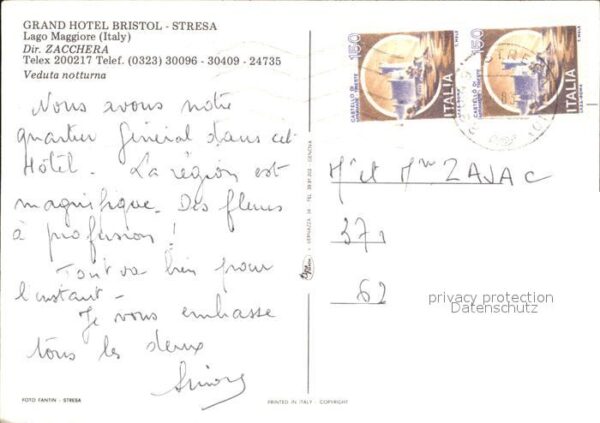 GRAND HOTEL BRISTOL - STRESA
Lago Maggiore (Italy)
Dir. ZACCHERA
Telex 200217 Telef. (0323) 30096 - 30409 - 24735
Veduta notturna
Nous avons notre
quartier général dans cet
Hôtel. La région est
magnifique. Des fleurs
à profusion !
Tout va bien pour
l'instant -
Je vous embrasse
tous les deux
FOTO FANTIN - STRESA
PRINTED IN ITALY - COPYRIGHT
150
CASTELLO DI
MIRAMARE TRIESTE
ITALIA
150
CASTELLO DI
MIRAMARE TRIESTE
ITALIA
Mr et Mme ZAJAC
37,
62
privacy protection
Datenschutz